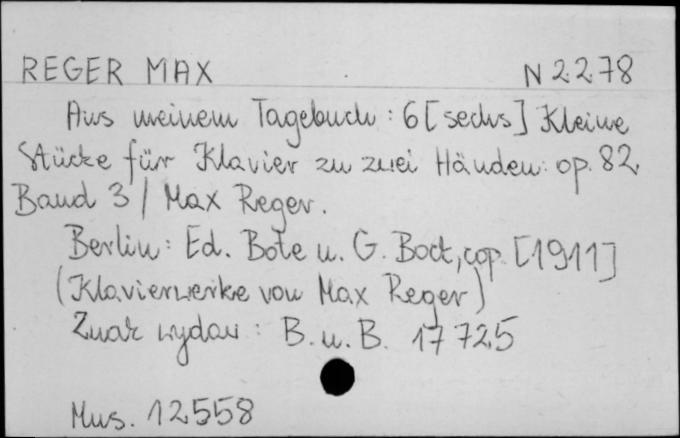 REGER MAX N 2278
Aus meinem Tagebuch : 6 [sechs] Kleine
Stücke für Klavier zu zwei Händen: op. 82.
Band 3 / Max Reger.
Berlin: Ed. Bote u. G. Bock, cop. [1911]
(Klavierwerke von Max Reger)
Znak wydaw : B. u. B. 17725
Mus. 12558